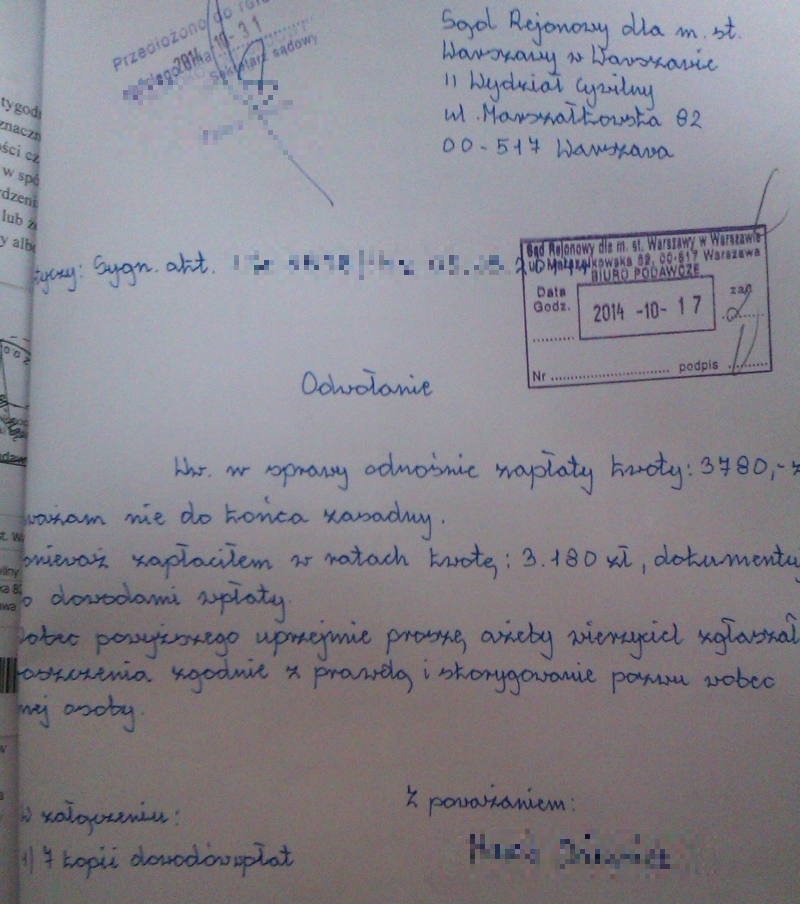 Przedłożono do
2014 -10- 31
Sekretarz sądowy
Sąd Rejonowy dla m. st.
Warszawy w Warszawie
II Wydział Cywilny
ul. Marszałkowska 82
00-517 Warszawa
tyczy: Sygn. akt.
Sąd Rejonowy dla m. st. Warszawy w Warszawie
ul. Marszałkowska 82, 00-517 Warszawa
BIURO PODAWCZE
Data
Godz.
2014 -10- 17
zał.
2
Nr
podpis
Odwołanie
Ww. w sprawy odnośnie zapłaty kwoty: 3780,- z
ważam nie do końca zasadny.
onieważ zapłaciłem w ratach kwotę: 3.180 zł, dokumenty
o dowodami wpłaty.
obec powyższego uprzejmie proszę ażeby wierzyciel zgłaszał
oszczenia zgodnie z prawdą i skorygowanie pozwu wobec
mej osoby.
W załączeniu:
Z poważaniem:
1) 7 kopii dowodów wpłat
tygod
znaczn
ości cz
w spó
rdzeni
lub z
y alb